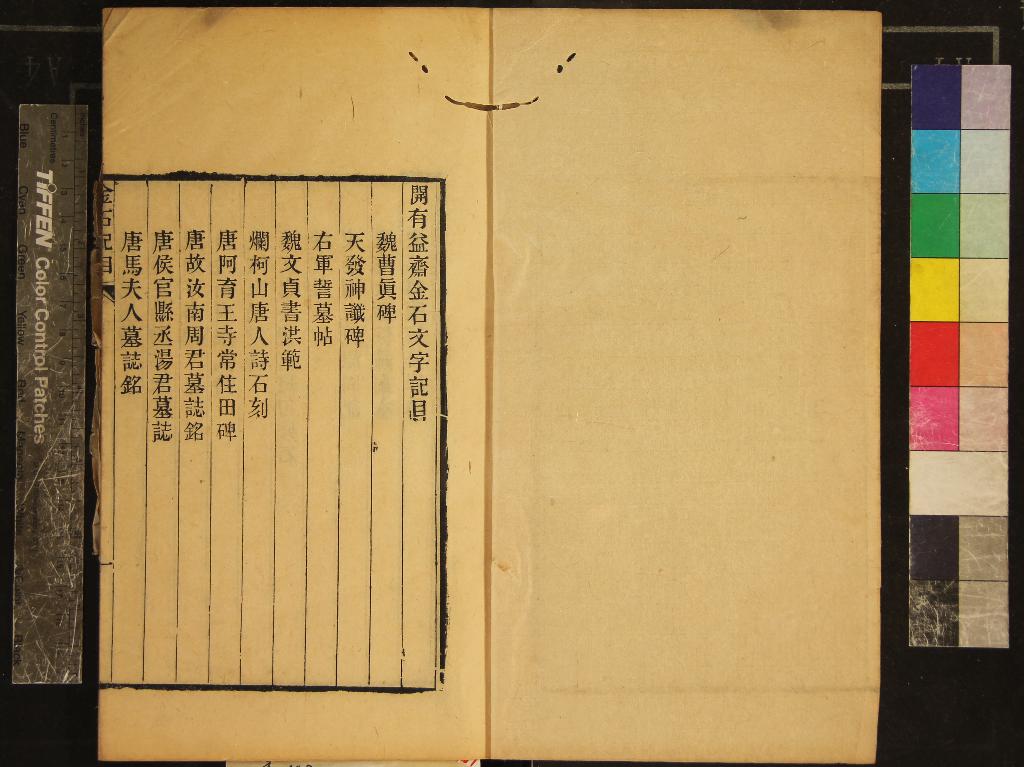 開有益齋金石文字記目
魏曹眞碑
天發神讖碑
右軍誓墓帖
魏文貞書洪範
爛柯山唐人詩石刻
唐阿育王寺常住田碑
唐故汝南周君墓誌銘
唐侯官縣丞湯君墓誌
唐馬夫人墓誌銘
金石記目
TIFFEN Color Control Patches
Centimetres
Blue
Cyan
Green
Yellow
Red
Black
A4